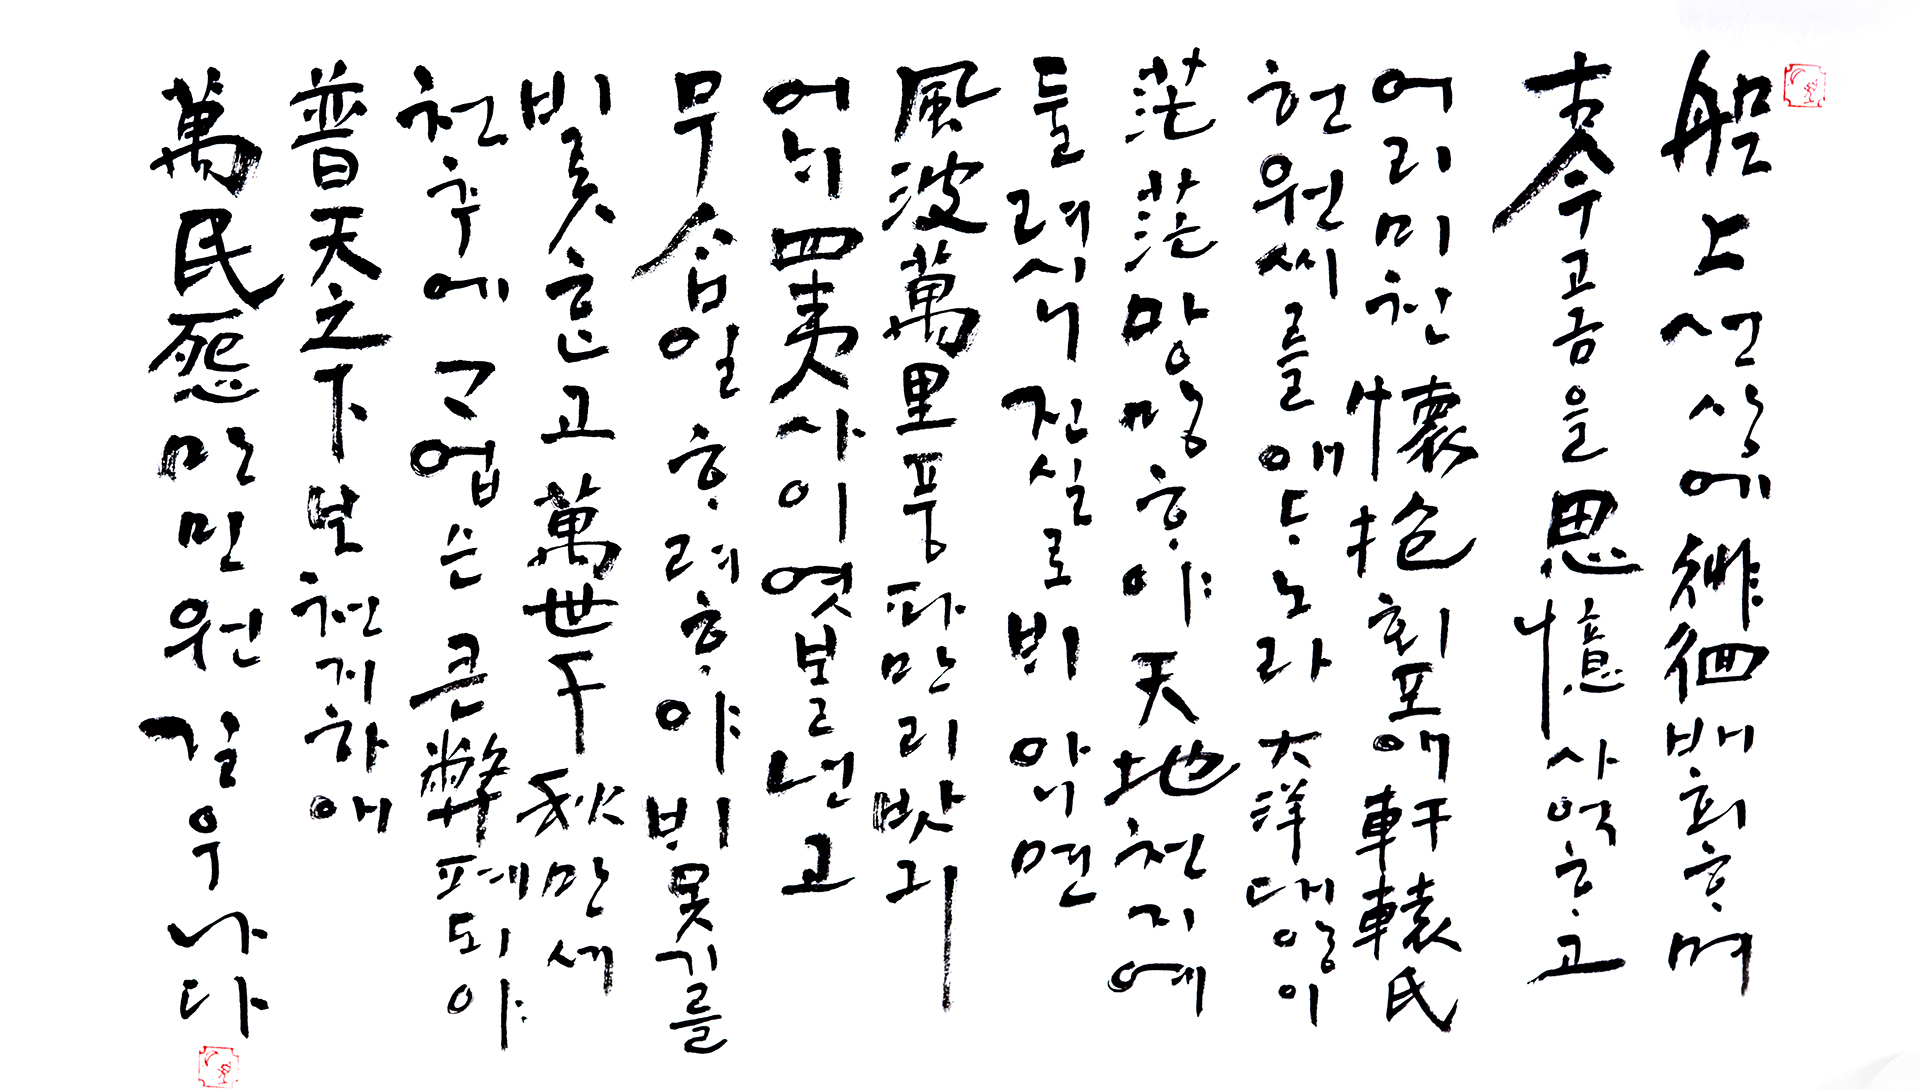 船上선상에 徘徊배회ᄒᆞ며
古今고금을 思憶사억ᄒᆞ고
어리미친 懷抱회포애 軒轅氏
헌원씨를 애ᄃᆞ노라 大洋대양이
茫茫망망ᄒᆞ야 天地천지예
둘려시니 진실로 ᄇᆡ 아니면
風波萬里풍파만리 밧긔
어ᄂᆡ 四夷사이 엿볼넌고
무슴 일 ᄒᆞ려 ᄒᆞ야 ᄇᆡ 못기를
비롯ᄒᆞᆫ고 萬世千秋만세
천추에 ᄀᆞ업슨 큰 弊폐 되야
普天之下보천지하애
萬民怨만민원 길우나다